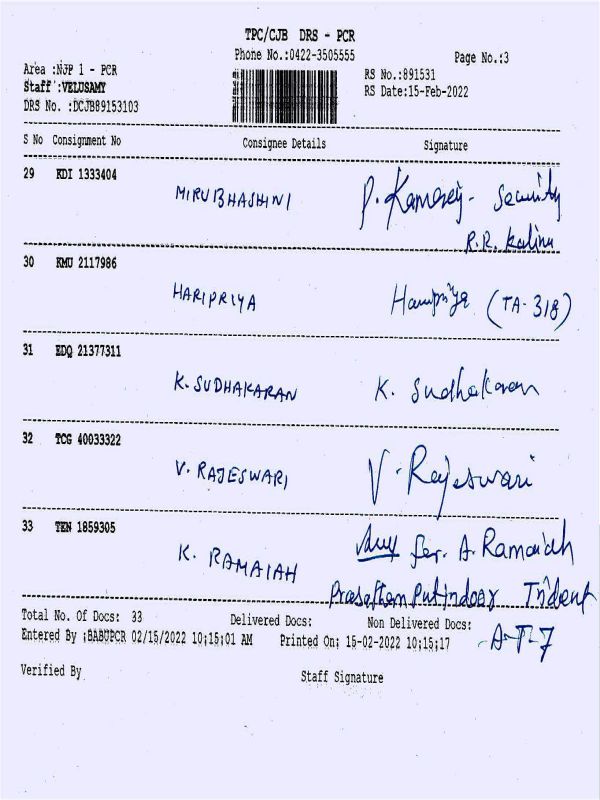 TPC/CJB DRS - PCR
Phone No.:0422-3505555
Page No.:3
Area :NJP 1 - PCR
RS No.:891531
Staff :VELUSAMY
RS Date:15-Feb-2022
DRS No. :DCJB89153103
S No Consignment No Consignee Details Signature
29 KDI 1333404
MIRUBHASHINI
P. - Security
R.R.
30 KMU 2117986
HARIPRIYA Haripriya (TA-318)
31 EDQ 21377311
K. SUDHAKARAN K. Sudhakaran
32 TCG 40033322
V. RAJESWARI V. Rajeswari
33 TEN 1859305
K. RAMAIAH for. A. Ramaiah
Trident
Total No. Of Docs: 33 Delivered Docs: Non Delivered Docs:
A-T-7
Entered By ;BABUPCR 02/15/2022 10;15;01 AM Printed On; 15-02-2022 10;15;17
Verified By Staff Signature